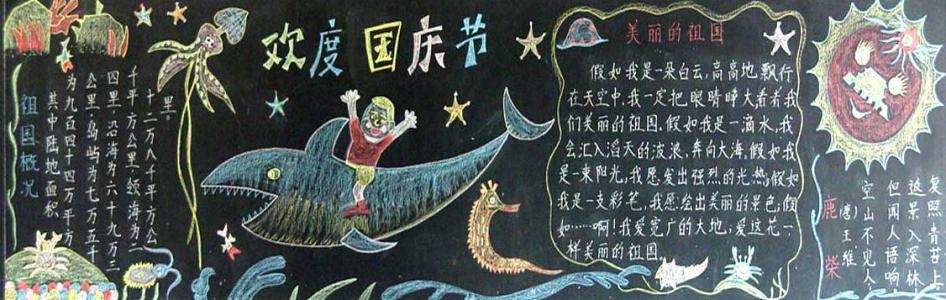 欢度国庆节
祖国概况
其中陆地面积
为九百四十四万平方
公里,岛屿为七万五千
四里,沿海为六十九万三
千平方公里,领海为二
十二万八千平方公
里。
美丽的祖国
假如我是一朵白云,高高地飘行
在天空中,我一定把眼睛睁大看看我
们美丽的祖国.假如我是一滴水,我
会汇入滔天的波浪,奔向大海,假如我
是一束阳光,我愿发出强烈的光热;假如
我是一支彩笔,我愿绘出美丽的景色;假
如……啊!我爱宽广的大地;爱这花一
样美丽的祖国
鹿柴
(唐)王维
空山不见人
但闻人语响
返景入深林
复照青苔上